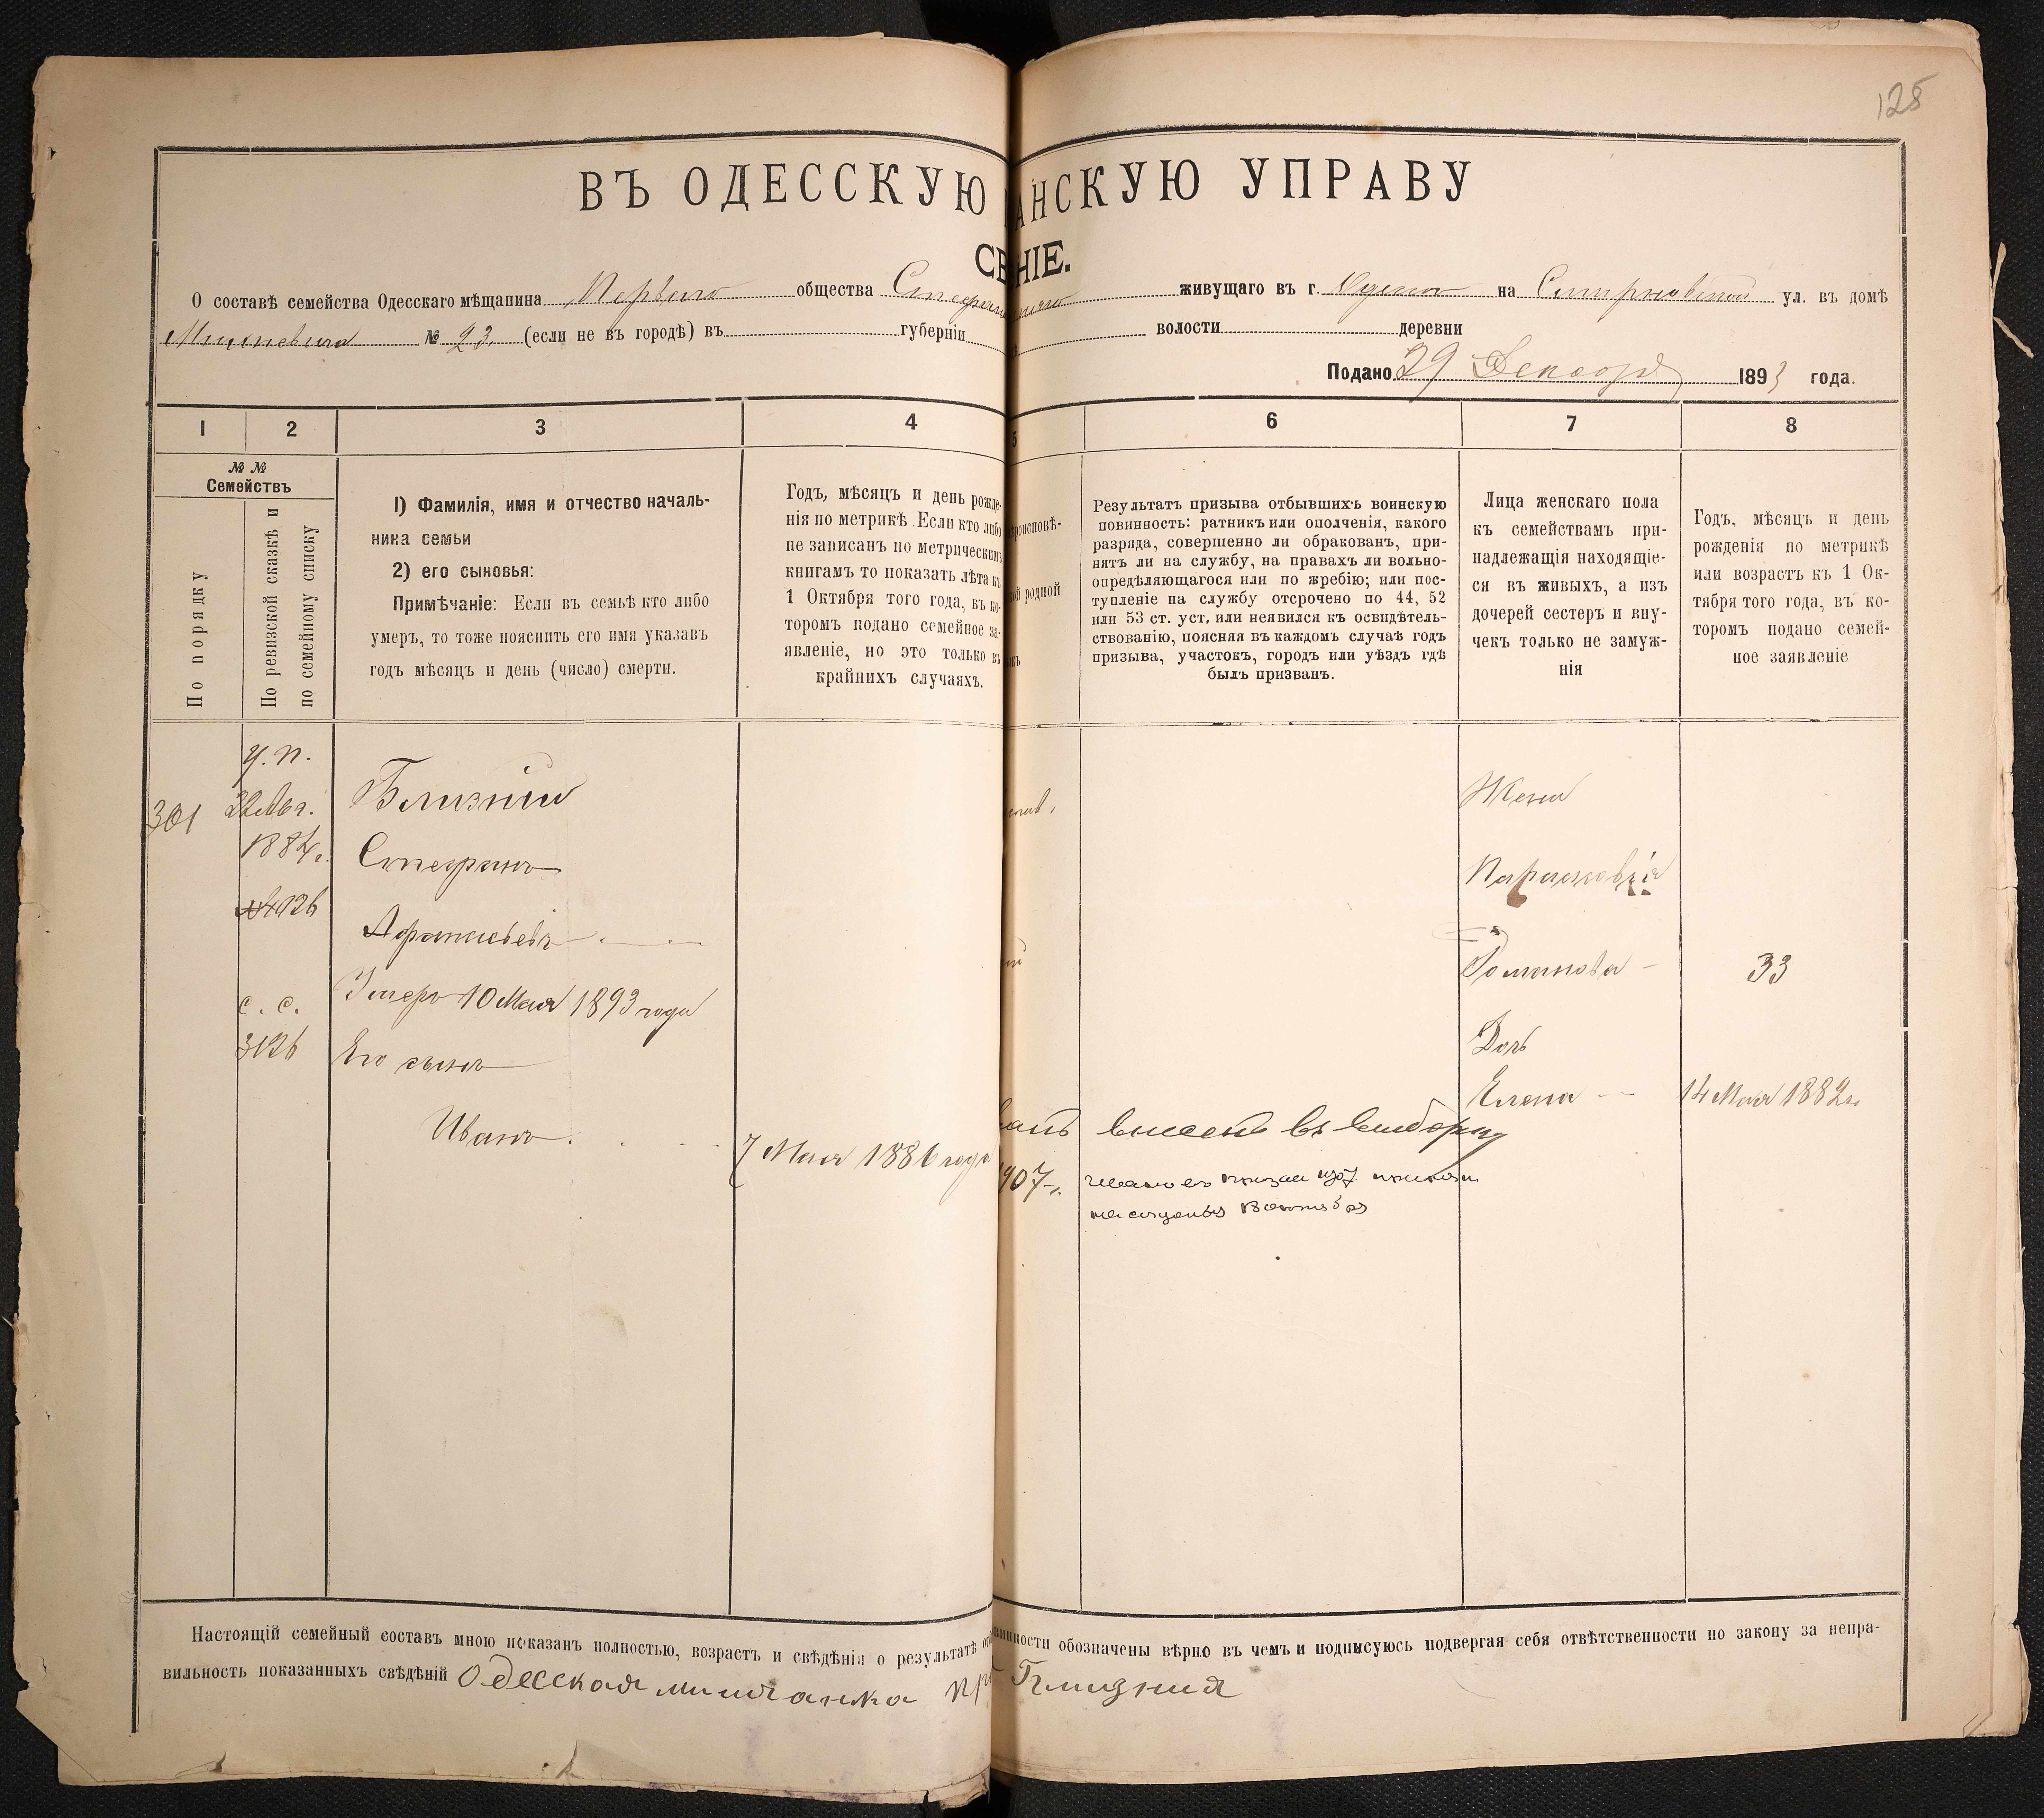 128
ВЪ ОДЕССКУЮ АНСКУЮ УПРАВУ
СЕ НІЕ.
О составѣ семейства Одесскаго мѣщанина Перваго общества живущаго въ г. Одессѣ на ул. въ домѣ
№ 23. (если не въ городѣ) въ губерніи волости деревни
Подано 29 Декабря 1893 года.
1 2 3 4 5 6 7 8
№ №
Семействъ
По порядку
По ревизской сказкѣ и
по семейному списку
1) Фамилія, имя и отчество началь-
ника семьи
2) его сыновья:
Примѣчаніе: Если въ семьѣ кто либо
умеръ, то тоже пояснить его имя указавъ
годъ мѣсяцъ и день (число) смерти.
Годъ, мѣсяцъ и день рожде-
нія по метрикѣ. Если кто либо
не записанъ по метрическимъ
книгамъ то показать лѣта къ
1 Октября того года, въ ко-
торомъ подано семейное за-
явленіе, но это только въ
крайнихъ случаяхъ.
ѣроисповѣ-
ой родной
Результатъ призыва отбывшихъ воинскую
повинность: ратникъ или ополченія, какого
разряда, совершенно ли обракованъ, при-
нятъ ли на службу, на правахъ ли вольно-
опредѣляющагося или по жребію; или пос-
тупленіе на службу отсрочено по 44, 52
или 53 ст. уст, или неявился къ освидѣтель-
ствованію, поясняя въ каждомъ случаѣ годъ
призыва, участокъ, городъ или уѣздъ гдѣ
былъ призванъ.
Лица женскаго пола
къ семействамъ при-
надлежащія находящіе-
ся въ живыхъ, а изъ
дочерей сестеръ и вну-
чекъ только не замуж-
нія
Годъ, мѣсяцъ и день
рожденія по метрикѣ
или возрастъ къ 1 Ок-
тября того года, въ ко-
торомъ подано семей-
ное заявленіе
301
У. п.
22 Авг.
1884 г.
№ 126
с. с.
3126
Близній
Стефанъ
Афанасьевъ
Умеръ 10 Мая 1893 года
Его сынъ
Иванъ
7 Мая 1886 года
907 г.
внесенъ въ
Жена
Параскевія
Романова - 33
Дочь
Елена - 14 Мая 1882 г.
Настоящій семейный составъ мною показанъ полностью, возрастъ и свѣдѣнія о результатѣ от винности обозначены вѣрно въ чемъ и подписуюсь подвергая себя отвѣтственности по закону за непра-
вильность показанныхъ свѣдѣній Одесская мищанка Близния